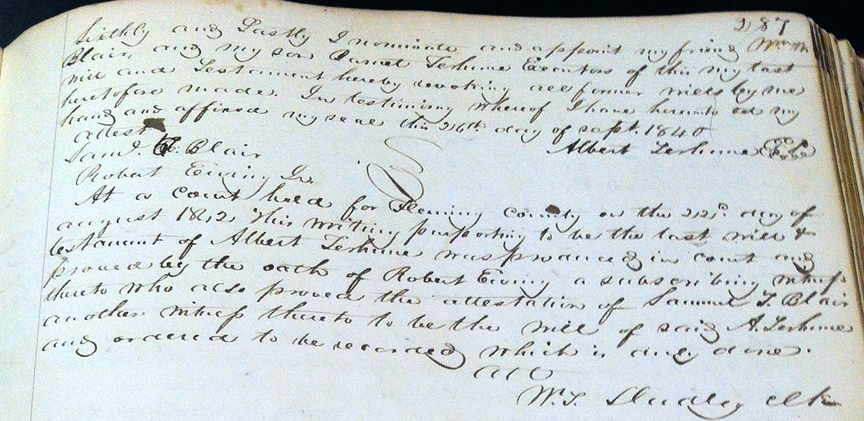 287
Sixthly and Lastly I nominate and appoint my friend Wm M
Blair and my son Daniel Terhune Executors of this my last
will and Testament hereby revoking all former wills by me
heretofore made. In testimony whereof I have hereunto set my
hand and affixed my seal this 26th day of sept. 1840
attest
Albert Terhune
Saml. T. Blair
Robert Ewing Jr.
At a court held for Fleming County on the 22d. day of
august 1842 This writing purporting to be the last will &
testament of Albert Terhune was produced in court and
proved by the oath of Robert Ewing a subscribing witness
thereto who also proved the attestation of Samuel T. Blair
another witness thereto to be the will of said A. Terhune
and ordered to be recorded which is duly done.
Att
W. T. Dudley clk